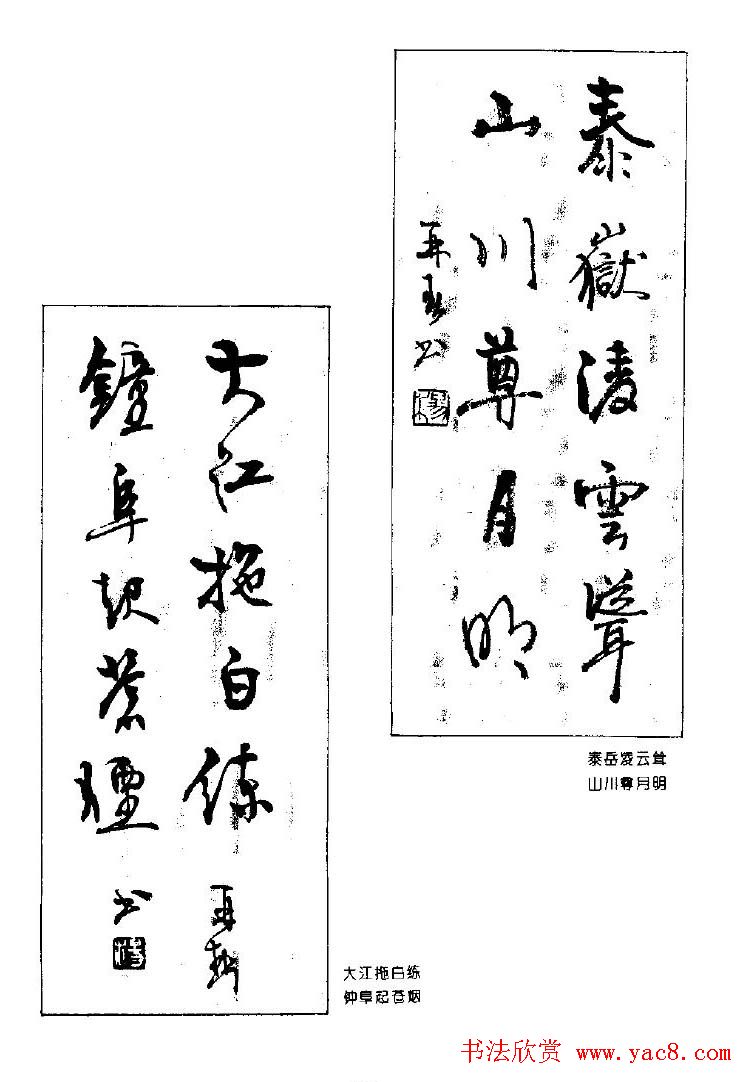 泰嶽凌雲聳
山川尊月明
再春书
楊
泰岳凌云耸
山川尊月明
大江拖白練
再春
鐘阜起蒼煙
书
大江拖白练
钟阜起苍烟
书法欣赏 www.yac8.com